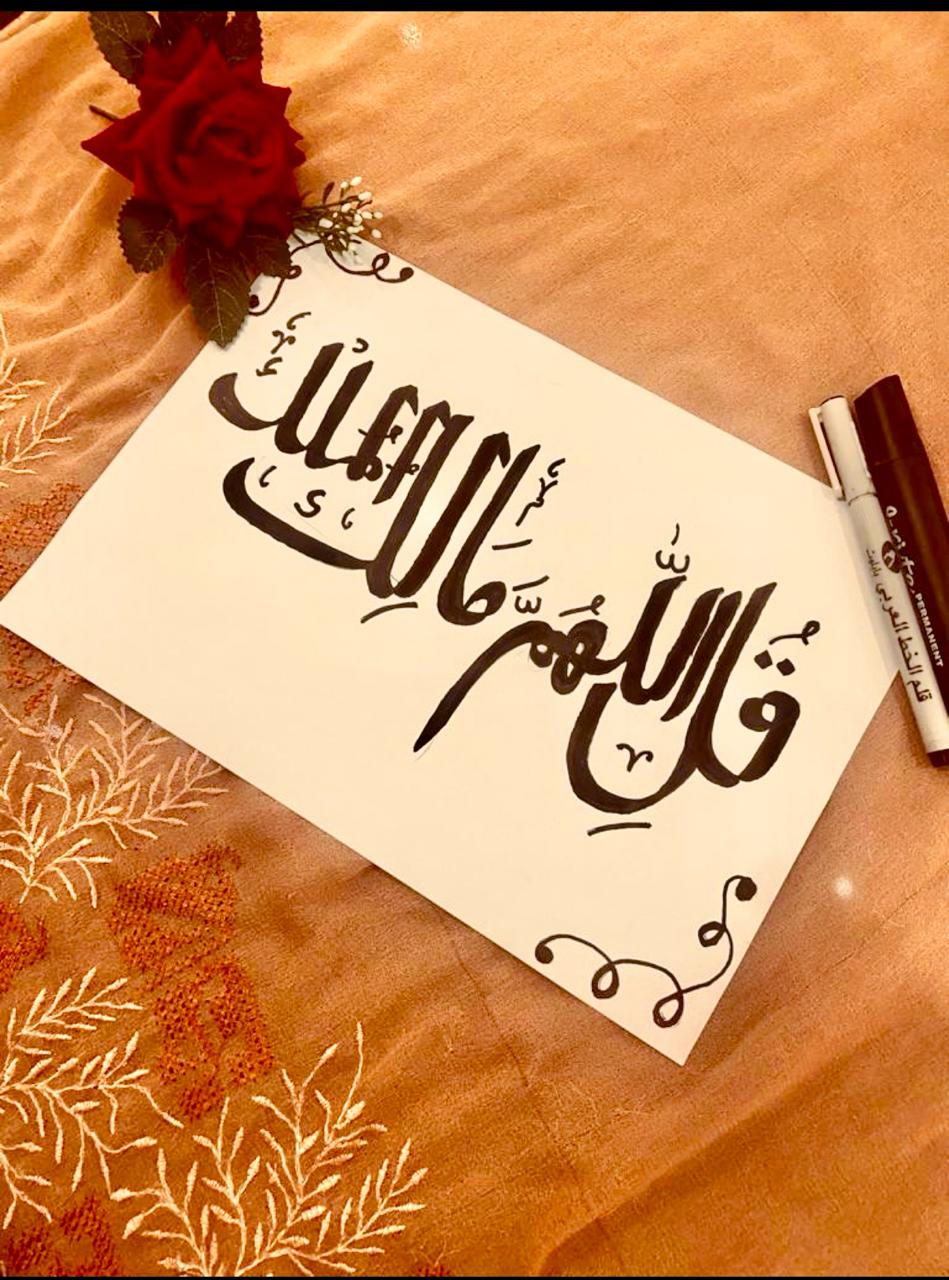 قُلِ اللَّهُمَّ مَالِكَ الْمُلْكِ
PERMANENT
قلم الخط العربي